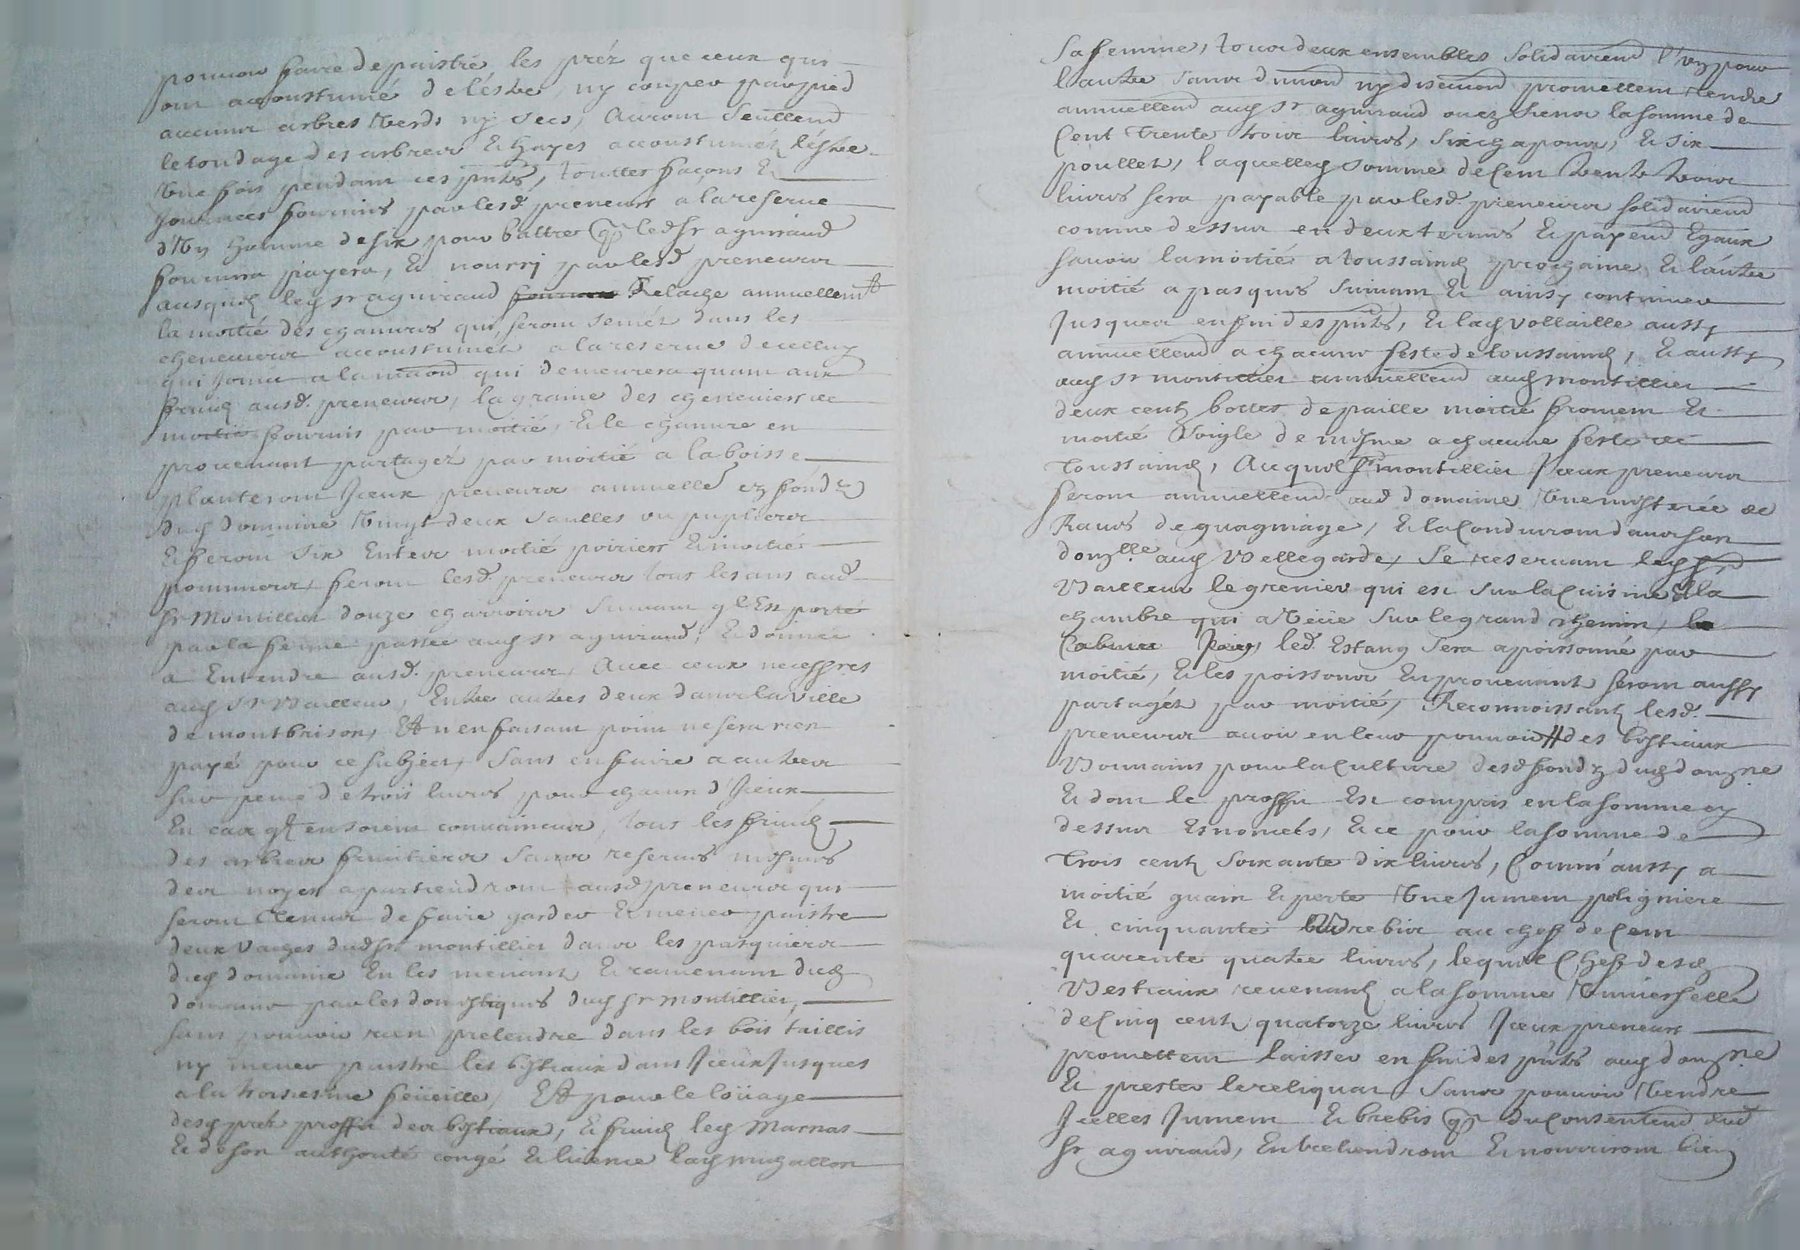 pouvoir faire depaistre les préz que ceux qui
ont accoustumé de léstre, ny couper par pied
aucuns arbres verds ny secs, auront seullemt
le tondage des arbres et hayes accoustumés léstre
une fois pendant ces pntes, touttes façons et
journées fournis par lesd. preneurs a la reserve
d'un homme de six pour battre que led sr aguiraud
fournira payera, et nourri par lesd preneurs
ausquels led sr aguiraud relache annuellemt
la moitié des chanvres qui seront semés dans les
chenevieres accoustumées a la reserve de celluy
qui joint a la maison qui demeurera quant aux
fruicts ausd. preneurs, la graine des chenevieres
fournis par moitié, et le chanvre en
provenant partagez par moitié a la boisse
planteront iceux preneurs annuellemt ez fondz
dud domaine vingt deux saulles ou pupliers
et feront six entes moitié poiriers et moitié
pommiers, feront lesd. preneurs tous les ans aud
sr Montillier douze charroirs suivant quil est porté
par la ferme passée aud sr aguiraud, et donnée
a entendre ausd. preneurs, avec ceux necessres
aud sr vailleur, entre autres deux dans la ville
de montbrison, et n'en faisant point ne sera rien
payé pour ce subject, sans en faire a autres
sur peine de trois livres pour chacun d'iceux
en cas qu'il en soient convaincus, tous les fruicts
des arbres fruitiers sans reserves mesmes
des noyers apartiendront ausd preneurs qui
seront tenus de faire garder et mener paistre
deux vaches dud sr montillier dans les pasquiers
dud domaine en les menant et ramenant dud
domaine par les domestiques dud sr montillier,
sans pouvoir rien pretendre dans les bois taillis
ny mener paistre les bestiaux dans iceux jusques
a la troisiesme feüeille, et pour le loüage
desd prés proffit des bestiaux, et fruicts led Marnas
et de son authorité congé et licence lad mugallon
sa femme, tous deux ensembles solidairemt l'un pour
l'autre sans divion ny discution promettent rendre
annuellemt aud sr aguiraud ou ez siens la somme de
Cent trente trois livres, six chapons, et six
poullets, laquelle somme de Cent trente trois
livres sera payable par lesd preneurs solidairemt
comme dessus en deux termes et payemt egaux
savoir la moitié a toussaincts prochaine et l'autre
moitié a pasques suivant et ainsy continuer
jusques en fin des pntes, et lad vollaille aussy
annuellemt a chacune feste de toussaincts, et aussy
aud sr montillier annuellemt aud montillier
deux cents bottes de paille moitié froment et
moitié soigle de mesme a chacune feste de
toussaincts, auquel sr montillier iceux preneurs
feront annuellemt aud domaine une mestrée de
raves de guagniage, et la conduiront dans son
domlle aud vellegarde, se reservant led sr
vailleur le grenier qui est sur la cuisine et la
chambre qui a veüe sur le grand chemin,
led. estang sera apoissonné par
moitié, et les poissons en provenant seront aussy
partagés par moitié, Reconnoissants lesd.
preneurs avoir en leur pouvoir # des bestiaux
voumains pour la culture desd fondz dud domne
et dont le proffit est compris en la somme cy
dessus enoncés, et ce pour la somme de
trois cents soixante dix livres, comm'aussy a
moitié guain et perte une jument poligniere
et cinquante brebis au chef de cent
quarente quatre livres, lequel chef desd
bestiaux revenants a la somme universelle
de cinq cents quatorze livres iceux preneurs
promettent laisser en fin des pntes aud domne
et prester le reliquat sans pouvoir vendre
icelles jument et brebis que du consentemt dud
sr aguiraud, entretiendront et nourriront bien